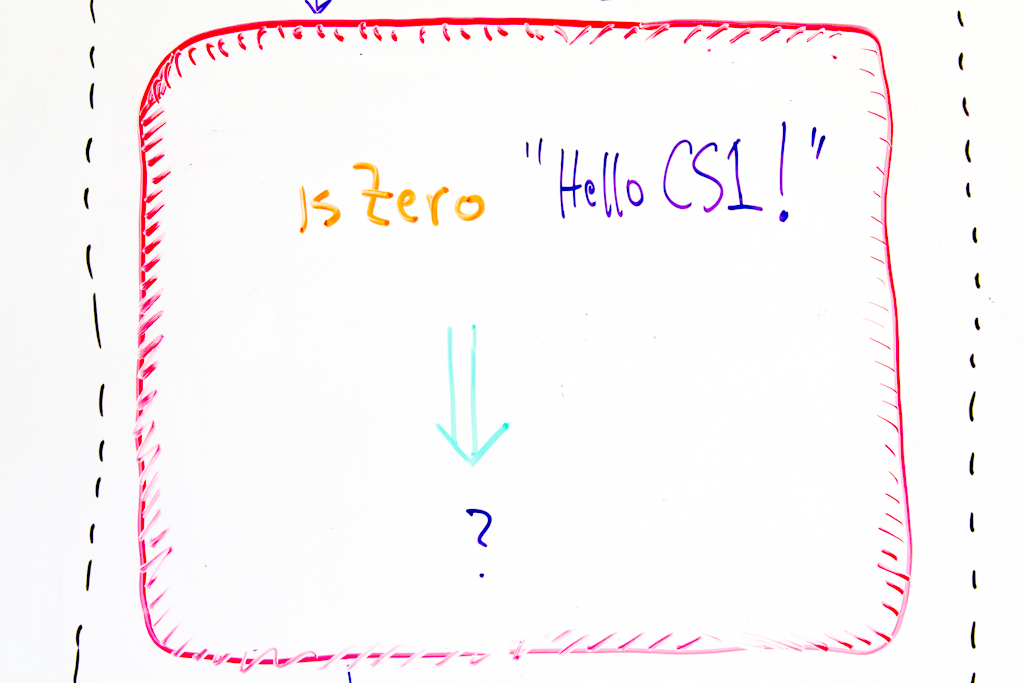 Is Zero "Hello CS1!"
?